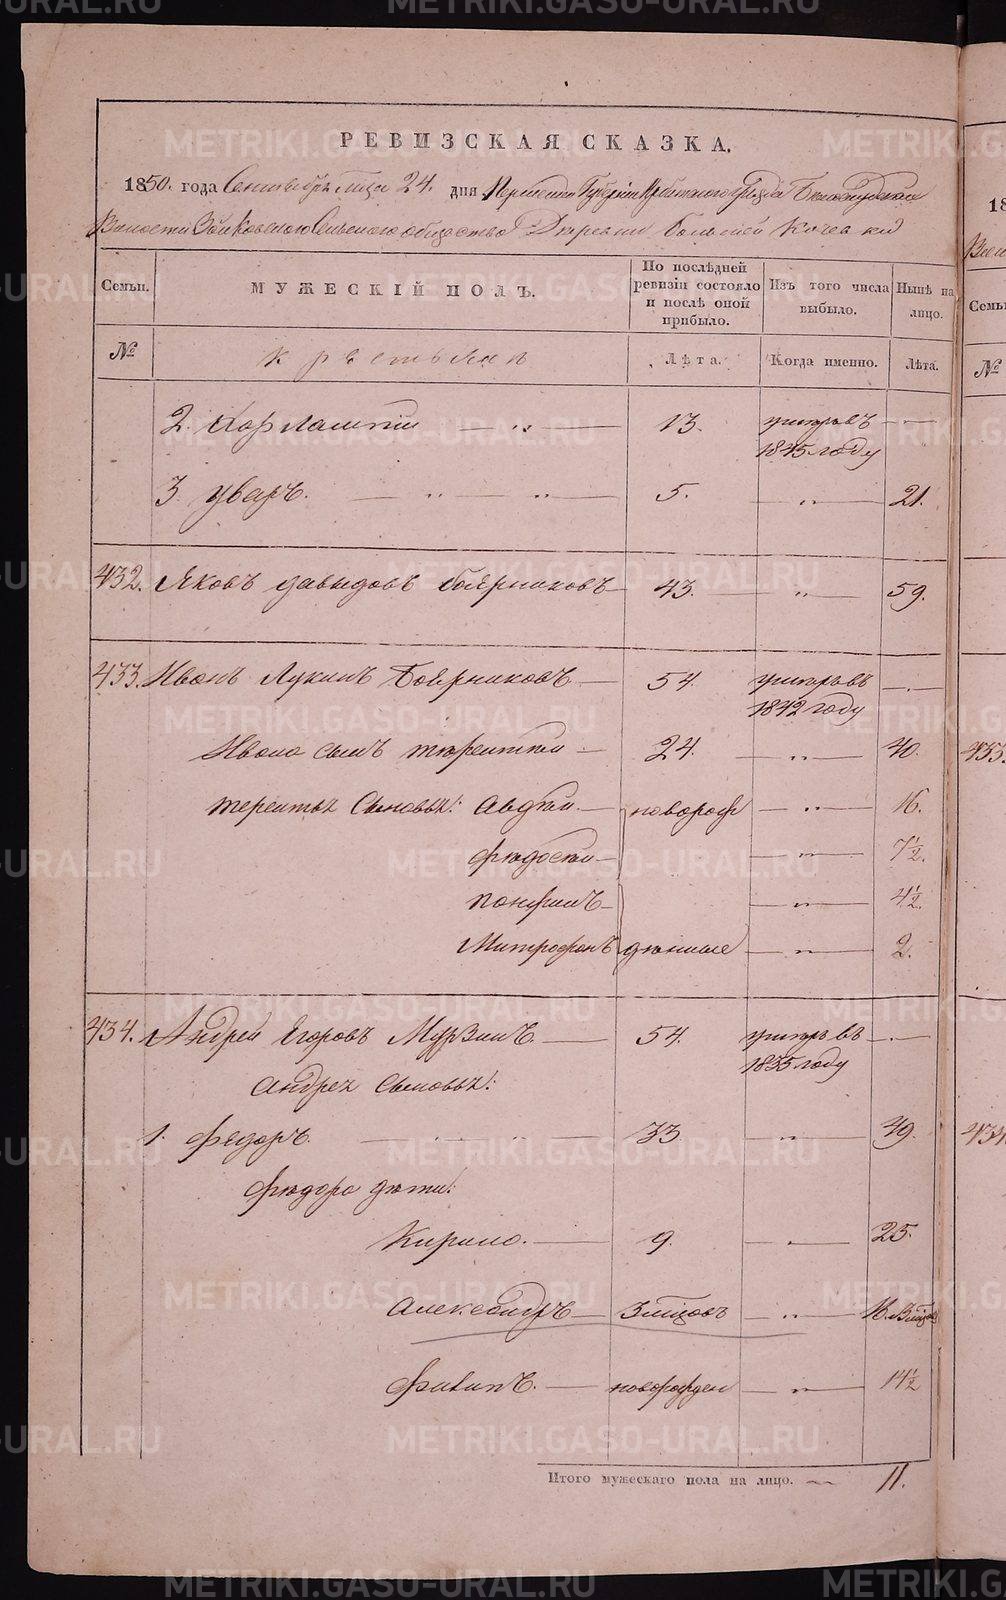 РЕВИЗСКАЯ СКАЗКА.
1850. года Сентября мца 24. дня Пермской Губернии Ирбитского уезда Белослудской
Волости Зайковского Сельского общества Деревни большей Кочевки
Семьи.
МУЖЕСКІЙ ПОЛЪ.
По послѣдней ревизіи состояло и послѣ оной прибыло.
Изъ того числа выбыло.
Нынѣ на лицо.
№
крестьянъ
Лѣта.
Когда именно.
Лѣта.
2. Харлампій — „ — 13. умеръ въ 1845 году —
3. Уваръ. — „ — „ — 5. — „ — 21.
432. Яковъ Давыдовъ Боярниковъ — 43. — „ — 59.
433. Иванъ Лукинъ Боярниковъ — 54. умеръ въ 1842 году —
Ивана сынъ терентей — 24. — „ — 40.
терентья Сыновья: Авдей. — новорож — „ — 16.
федосей — „ — 7½.
понфилъ — „ — 4½.
Митрофанъ денные — „ — 2.
434. Андрей Егоровъ Мурзинъ. — 54. умеръ въ 1835 году —
Андрея Сыновья:
1. федоръ. — 33 — „ — 49.
федора дети:
Кирило. — 9. — „ — 25.
Александръ — 3 мцовъ — „ — 16.
филипъ. — новорожден — „ — 14½
Итого мужескаго пола на лицо. — 11.
METRIKI.GASO-URAL.RU